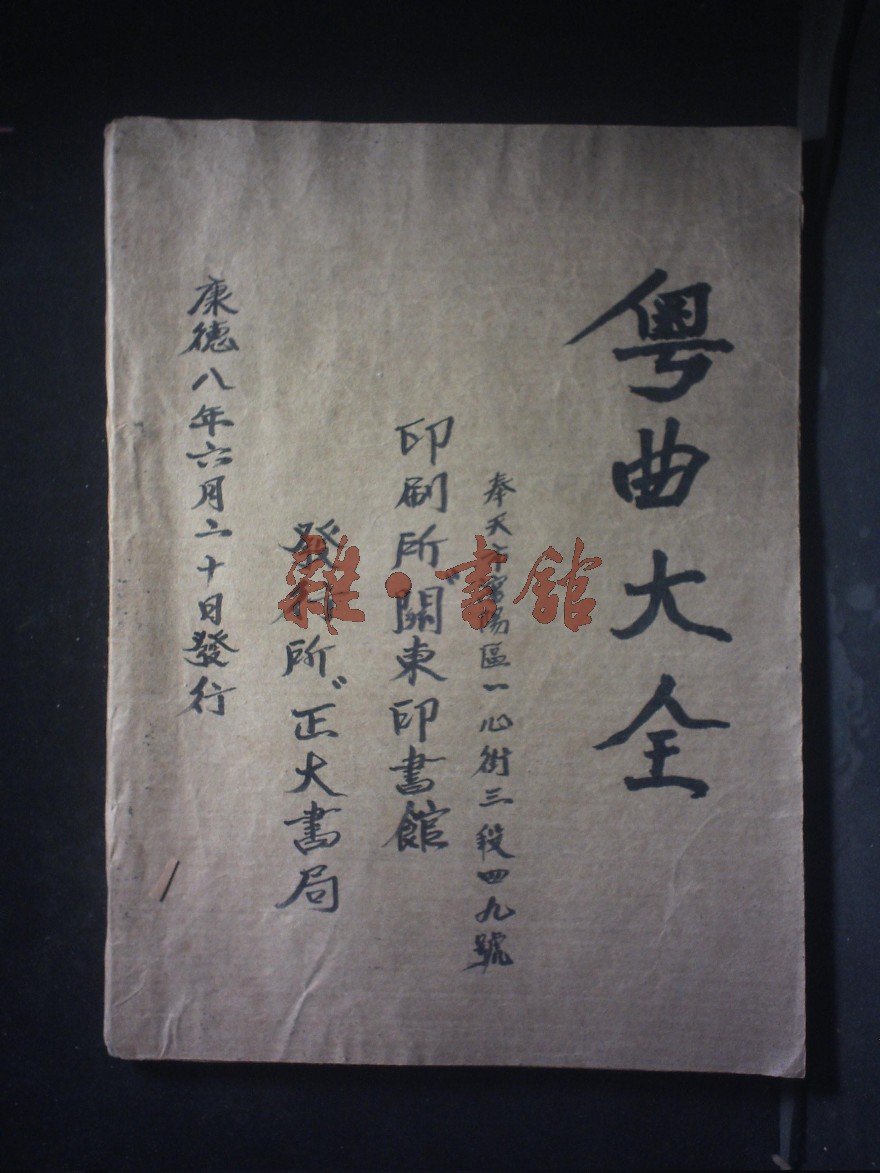 粤曲大全
奉天市瀋陽區一心街三段四九號
印刷所〃關東印書館
發行所〃正大書局
康德八年六月二十日發行
雜·書館